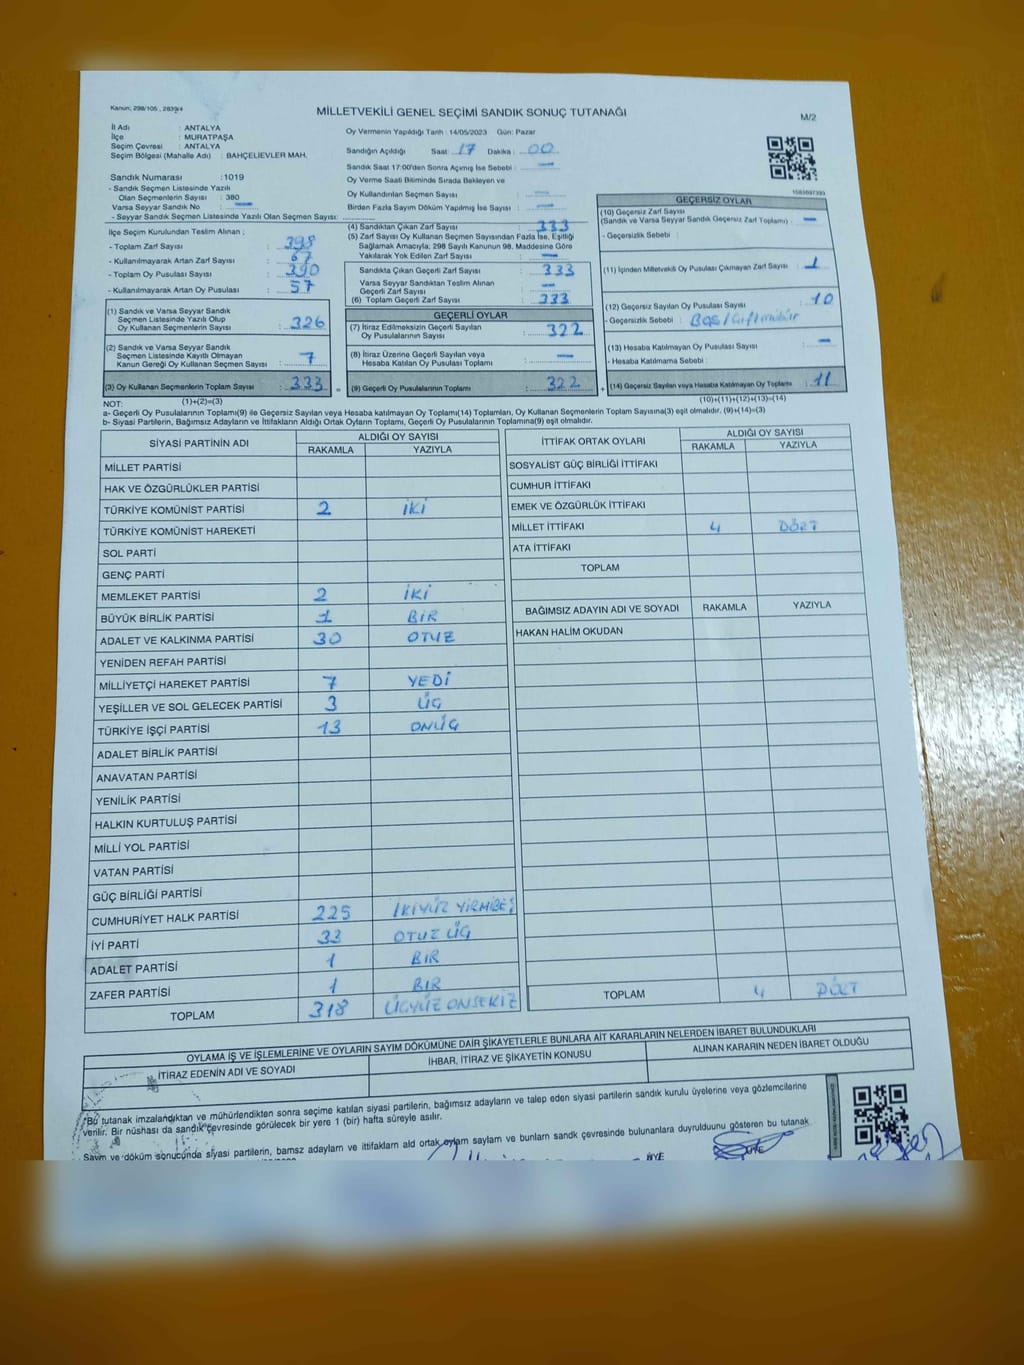 Kanun; 298/105 , 2839/4
MİLLETVEKİLİ GENEL SEÇİMİ SANDIK SONUÇ TUTANAĞI
M/2
İl Adı : ANTALYA
İlçe : MURATPAŞA
Seçim Çevresi : ANTALYA
Seçim Bölgesi (Mahalle Adı) : BAHÇELİEVLER MAH.
Sandık Numarası : 1019
- Sandık Seçmen Listesinde Yazılı
Olan Seçmenlerin Sayısı : 380
Varsa Seyyar Sandık No —
- Seyyar Sandık Seçmen Listesinde Yazılı Olan Seçmen Sayısı:
Oy Vermenin Yapıldığı Tarih : 14/05/2023 Gün: Pazar
Sandığın Açıldığı Saat: 17 Dakika: 00
Sandık Saat 17:00'den Sonra Açımış İse Sebebi : —
Oy Verme Saati Bitiminde Sırada Bekleyen ve
Oy Kullandırılan Seçmen Sayısı : —
Birden Fazla Sayım Döküm Yapılmış İse Sayısı : —
İlçe Seçim Kurulundan Teslim Alınan ;
- Toplam Zarf Sayısı : 398
- Kullanılmayarak Artan Zarf Sayısı : 67
- Toplam Oy Pusulası Sayısı : 390
- Kullanılmayarak Artan Oy Pusulası : 57
(1) Sandık ve Varsa Seyyar Sandık
Seçmen Listesinde Yazılı Olup
Oy Kullanan Seçmenlerin Sayısı : 326
(2) Sandık ve Varsa Seyyar Sandık
Seçmen Listesinde Kayıtlı Olmayan
Kanun Gereği Oy Kullanan Seçmen Sayısı : 7
(3) Oy Kullanan Seçmenlerin Toplam Sayısı : 333
(1)+(2)=(3)
(4) Sandıktan Çıkan Zarf Sayısı : 333
(5) Zarf Sayısı Oy Kullanan Seçmen Sayısından Fazla İse, Eşitliği
Sağlamak Amacıyla; 298 Sayılı Kanunun 98. Maddesine Göre
Yakılarak Yok Edilen Zarf Sayısı : —
Sandıkta Çıkan Geçerli Zarf Sayısı : 333
Varsa Seyyar Sandıktan Teslim Alınan
Geçerli Zarf Sayısı : —
(6) Toplam Geçerli Zarf Sayısı : 333
GEÇERLİ OYLAR
(7) İtiraz Edilmeksizin Geçerli Sayılan
Oy Pusulalarının Sayısı : 322
(8) İtiraz Üzerine Geçerli Sayılan veya
Hesaba Katılan Oy Pusulası Toplamı : —
= (9) Geçerli Oy Pusulalarının Toplamı : 322
GEÇERSİZ OYLAR
(10) Geçersiz Zarf Sayısı
(Sandık ve Varsa Seyyar Sandık Geçersiz Zarf Toplamı) : —
- Geçersizlik Sebebi :
(11) İçinden Milletvekili Oy Pusulası Çıkmayan Zarf Sayısı : 1
(12) Geçersiz Sayılan Oy Pusulası Sayısı : 10
- Geçersizlik Sebebi :
(13) Hesaba Katılmayan Oy Pusulası Sayısı : —
- Hesaba Katılmama Sebebi :
+ (14) Geçersiz Sayılan veya Hesaba Katılmayan Oy Toplamı : 11
(10)+(11)+(12)+(13)=(14)
NOT:
a- Geçerli Oy Pusulalarının Toplamı(9) ile Geçersiz Sayılan veya Hesaba Katılmayan Oy Toplamı(14) Toplamları, Oy Kullanan Seçmenlerin Toplam Sayısına(3) eşit olmalıdır. (9)+(14)=(3)
b- Siyasi Partilerin, Bağımsız Adayların ve İttifakların Aldığı Ortak Oyların Toplamı, Geçerli Oy Pusulalarının Toplamına(9) eşit olmalıdır.
SİYASİ PARTİNİN ADI ALDIĞI OY SAYISI
RAKAMLA YAZIYLA
MİLLET PARTİSİ
HAK VE ÖZGÜRLÜKLER PARTİSİ
TÜRKİYE KOMÜNİST PARTİSİ 2 İKİ
TÜRKİYE KOMÜNİST HAREKETİ
SOL PARTİ
GENÇ PARTİ
MEMLEKET PARTİSİ 2 İKİ
BÜYÜK BİRLİK PARTİSİ 1 BİR
ADALET VE KALKINMA PARTİSİ 30 OTUZ
YENİDEN REFAH PARTİSİ
MİLLİYETÇİ HAREKET PARTİSİ 7 YEDİ
YEŞİLLER VE SOL GELECEK PARTİSİ 3 ÜÇ
TÜRKİYE İŞÇİ PARTİSİ 13 ONÜÇ
ADALET BİRLİK PARTİSİ
ANAVATAN PARTİSİ
YENİLİK PARTİSİ
HALKIN KURTULUŞ PARTİSİ
MİLLİ YOL PARTİSİ
VATAN PARTİSİ
GÜÇ BİRLİĞİ PARTİSİ
CUMHURİYET HALK PARTİSİ 225 İKİYÜZ
İYİ PARTİ 33 OTUZ ÜÇ
ADALET PARTİSİ 1 BİR
ZAFER PARTİSİ 1 BIR
TOPLAM 318 ÜÇYÜZ ONSEKİZ
İTTİFAK ORTAK OYLARI ALDIĞI OY SAYISI
RAKAMLA YAZIYLA
SOSYALİST GÜÇ BİRLİĞİ İTTİFAKI
CUMHUR İTTİFAKI
EMEK VE ÖZGÜRLÜK İTTİFAKI
MİLLET İTTİFAKI 4 DÖRT
ATA İTTİFAKI
TOPLAM
BAĞIMSIZ ADAYIN ADI VE SOYADI RAKAMLA YAZIYLA
HAKAN HALİM OKUDAN
TOPLAM 4 DÖRT
OYLAMA İŞ VE İŞLEMLERİNE VE OYLARIN SAYIM DÖKÜMÜNE DAİR ŞİKAYETLERLE BUNLARA AİT KARARLARIN NELERDEN İBARET BULUNDUKLARI
İTİRAZ EDENİN ADI VE SOYADI İHBAR, İTİRAZ VE ŞİKAYETİN KONUSU ALINAN KARARIN NEDEN İBARET OLDUĞU
*Bu tutanak imzalandıktan ve mühürlendikten sonra seçime katılan siyasi partilerin, bağımsız adayların ve talep eden siyasi partilerin sandık kurulu üyelerine veya gözlemcilerine
verilir. Bir nüshası da sandık çevresinde görülecek bir yere 1 (bir) hafta süreyle asılır.
Sayım ve döküm sonucunda siyasi partilerin, bamsz adayların ve ittifakların ald ortak oylam saylam ve bunlarn sandk çevresinde bulunanlara duyrulduunu gösteren bu tutanak
ÜYE